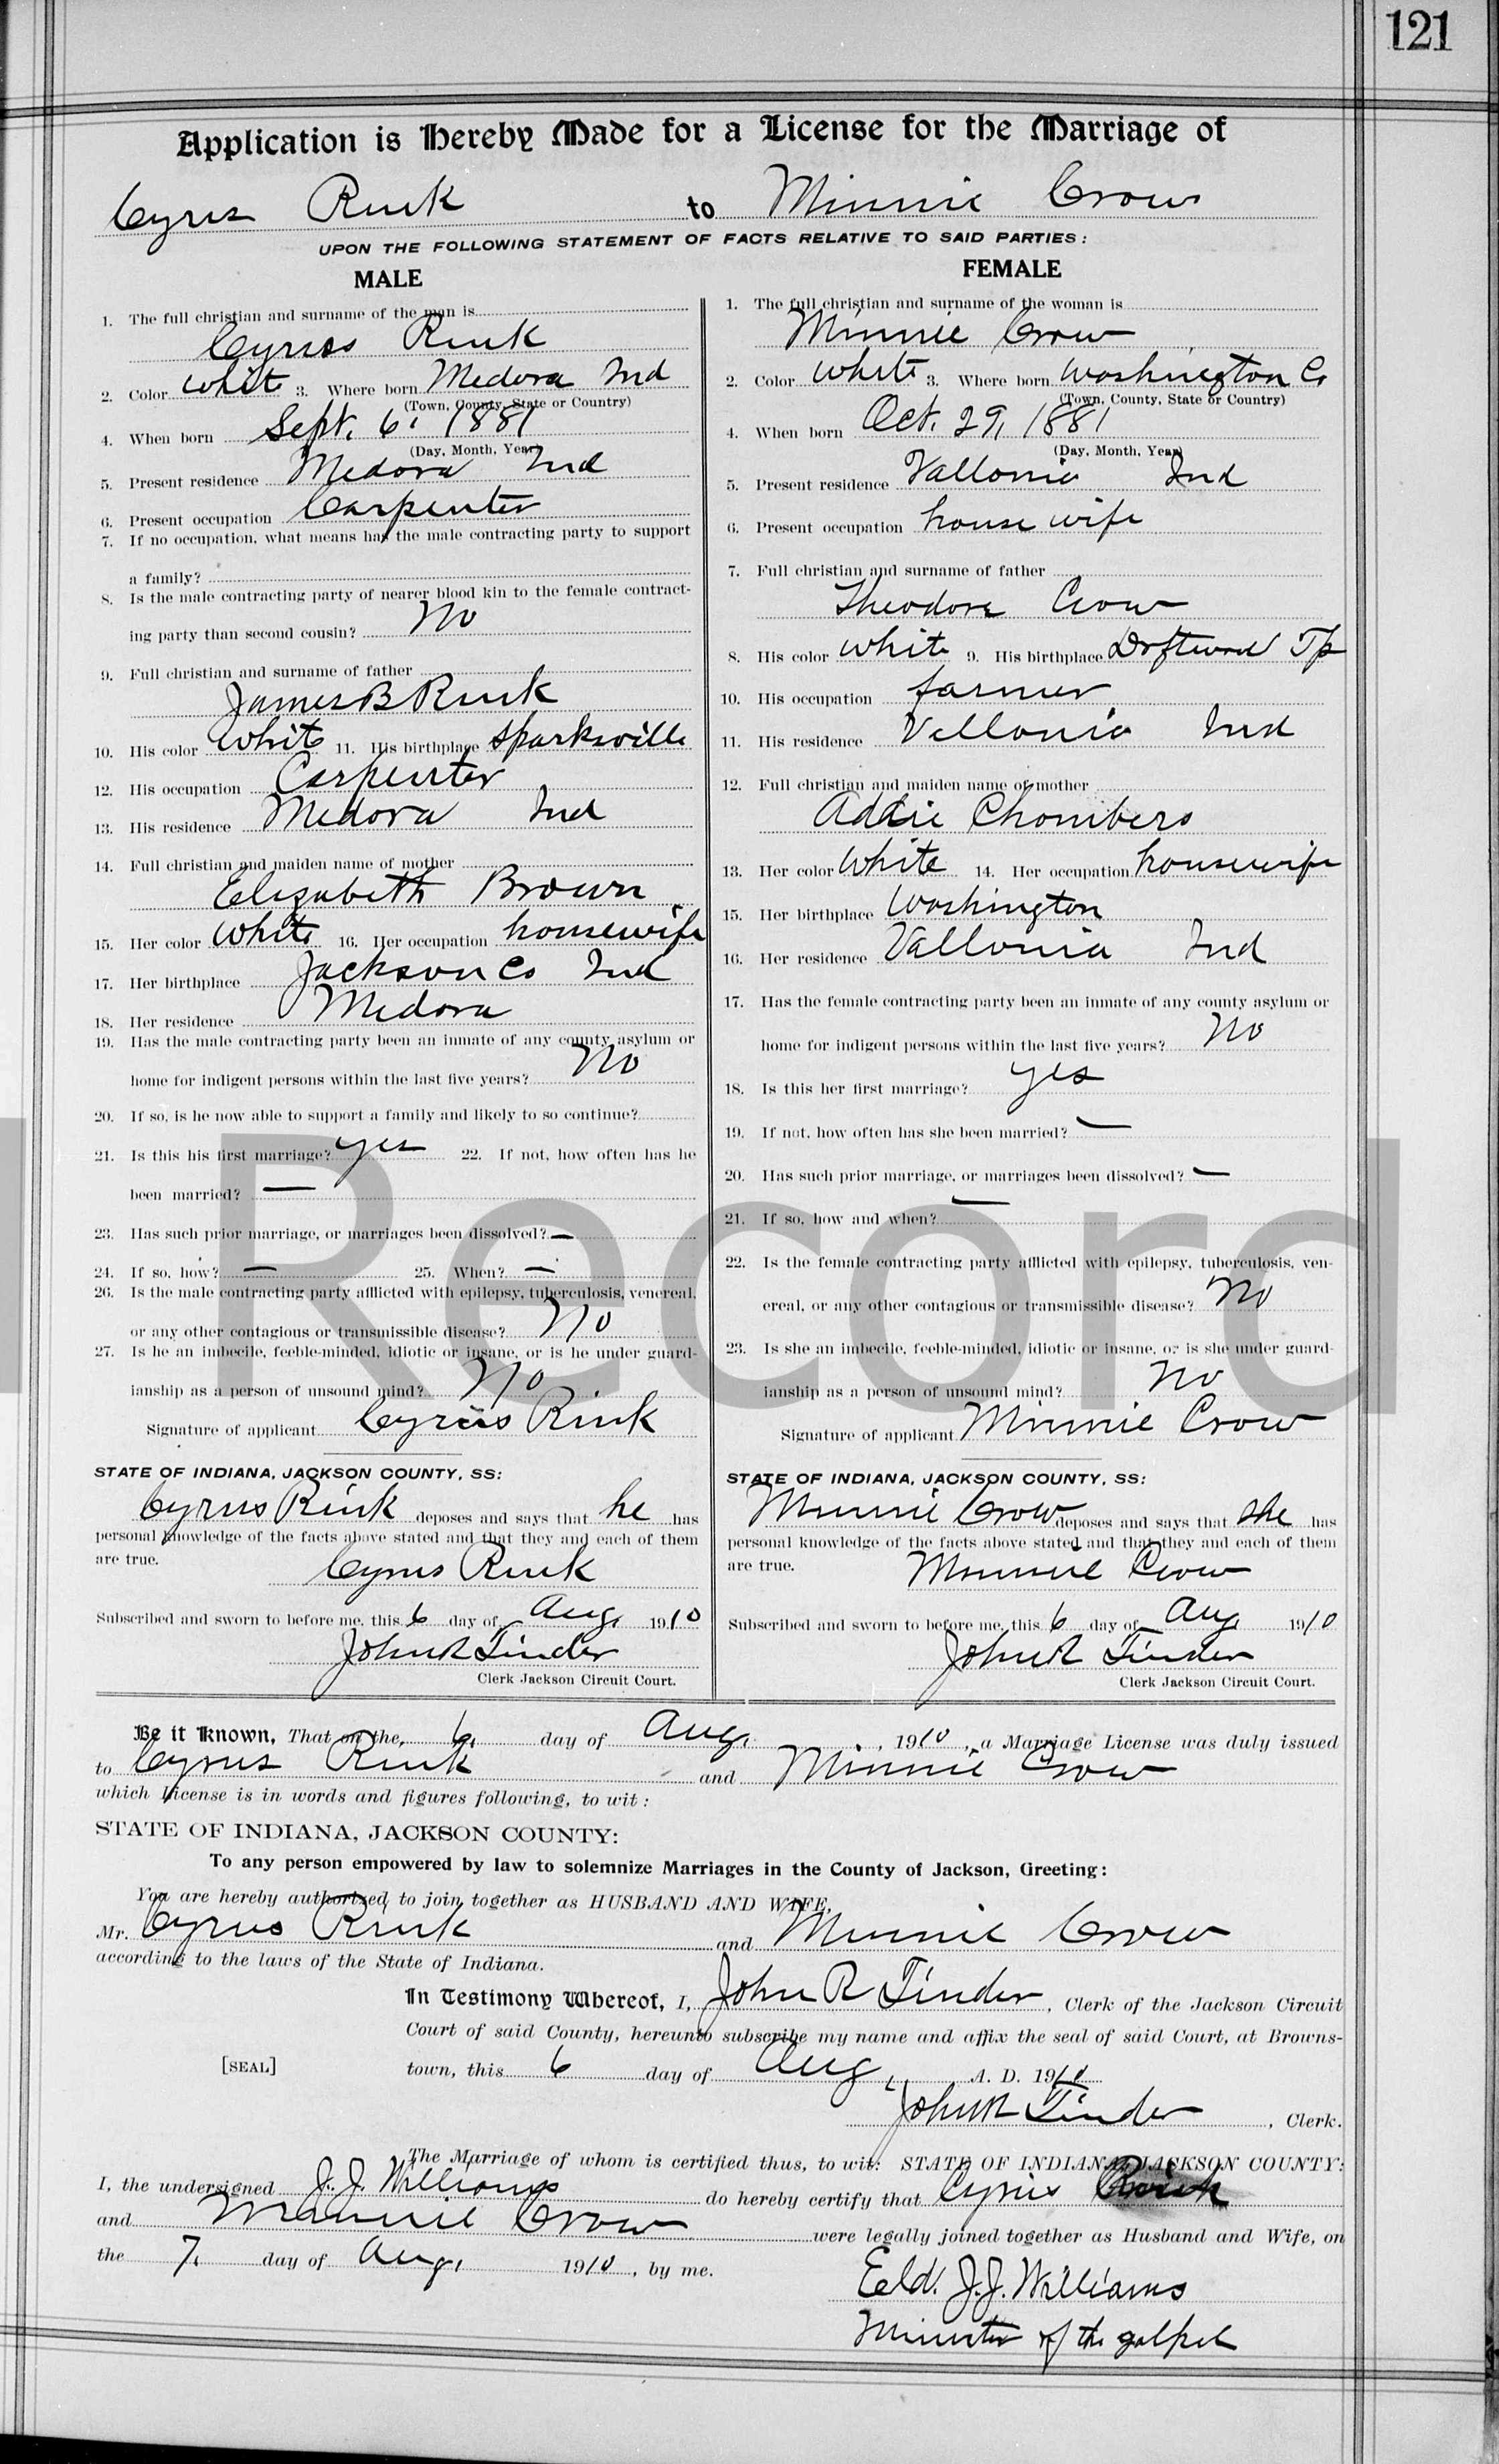 121
Application is Hereby Made for a License for the Marriage of
Cyrus Rink to Minnie Crow
UPON THE FOLLOWING STATEMENT OF FACTS RELATIVE TO SAID PARTIES:
MALE
1. The full christian and surname of the man is
Cyrus Rink
2. Color White 3. Where born Medora Ind
(Town, County, State or Country)
4. When born Sept. 6, 1881
(Day, Month, Year)
5. Present residence Medora Ind
6. Present occupation Carpenter
7. If no occupation, what means has the male contracting party to support
a family?
8. Is the male contracting party of nearer blood kin to the female contract-
ing party than second cousin? No
9. Full christian and surname of father
James B Rink
10. His color White 11. His birthplace Sparksville
12. His occupation Carpenter
13. His residence Medora Ind
14. Full christian and maiden name of mother
Elizabeth Brown
15. Her color White 16. Her occupation housewife
17. Her birthplace Jackson Co Ind
18. Her residence Medora
19. Has the male contracting party been an inmate of any county asylum or
home for indigent persons within the last five years? No
20. If so, is he now able to support a family and likely to so continue?
21. Is this his first marriage? yes 22. If not, how often has he
been married? —
23. Has such prior marriage, or marriages been dissolved? —
24. If so, how? — 25. When? —
26. Is the male contracting party afflicted with epilepsy, tuberculosis, venereal,
or any other contagious or transmissible disease? No
27. Is he an imbecile, feeble-minded, idiotic or insane, or is he under guard-
ianship as a person of unsound mind? No
Signature of applicant Cyrus Rink
STATE OF INDIANA, JACKSON COUNTY, SS:
Cyrus Rink deposes and says that he has
personal knowledge of the facts above stated and that they and each of them
are true.
Cyrus Rink
Subscribed and sworn to before me, this 6 day of Aug, 1910
John R Tinder
Clerk Jackson Circuit Court.
FEMALE
1. The full christian and surname of the woman is
Minnie Crow
2. Color White 3. Where born Washington Co
(Town, County, State or Country)
4. When born Oct. 29, 1881
(Day, Month, Year)
5. Present residence Vallonia Ind
6. Present occupation house wife
7. Full christian and surname of father
Theodore Crow
8. His color White 9. His birthplace Driftwood Tp
10. His occupation farmer
11. His residence Vallonia Ind
12. Full christian and maiden name of mother
Addie Chambers
13. Her color White 14. Her occupation housewife
15. Her birthplace Washington
16. Her residence Vallonia Ind
17. Has the female contracting party been an inmate of any county asylum or
home for indigent persons within the last five years? No
18. Is this her first marriage? yes
19. If not, how often has she been married? —
20. Has such prior marriage, or marriages been dissolved? —
21. If so, how and when? —
22. Is the female contracting party afflicted with epilepsy, tuberculosis, ven-
ereal, or any other contagious or transmissible disease? No
23. Is she an imbecile, feeble-minded, idiotic or insane, or is she under guard-
ianship as a person of unsound mind? No
Signature of applicant Minnie Crow
STATE OF INDIANA, JACKSON COUNTY, SS:
Minnie Crow deposes and says that she has
personal knowledge of the facts above stated and that they and each of them
are true.
Minnie Crow
Subscribed and sworn to before me, this 6 day of Aug 1910
John R Tinder
Clerk Jackson Circuit Court.
Be it Known, That on the 6, day of Aug, 1910, a Marriage License was duly issued
to Cyrus Rink and Minnie Crow
which License is in words and figures following, to wit:
STATE OF INDIANA, JACKSON COUNTY:
To any person empowered by law to solemnize Marriages in the County of Jackson, Greeting:
You are hereby authorized to join together as HUSBAND AND WIFE,
Mr. Cyrus Rink and Minnie Crow
according to the laws of the State of Indiana.
In Testimony Whereof, I, John R Tinder, Clerk of the Jackson Circuit
Court of said County, hereunto subscribe my name and affix the seal of said Court, at Browns-
[SEAL] town, this 6 day of Aug, A. D. 1910
John R Tinder, Clerk.
The Marriage of whom is certified thus, to wit: STATE OF INDIANA, JACKSON COUNTY:
I, the undersigned J. J. Williams do hereby certify that Cyrus Rink
and Minnie Crow were legally joined together as Husband and Wife, on
the 7, day of Aug, 1910, by me.
Eld. J. J. Williams
Minister of the gospel
Record